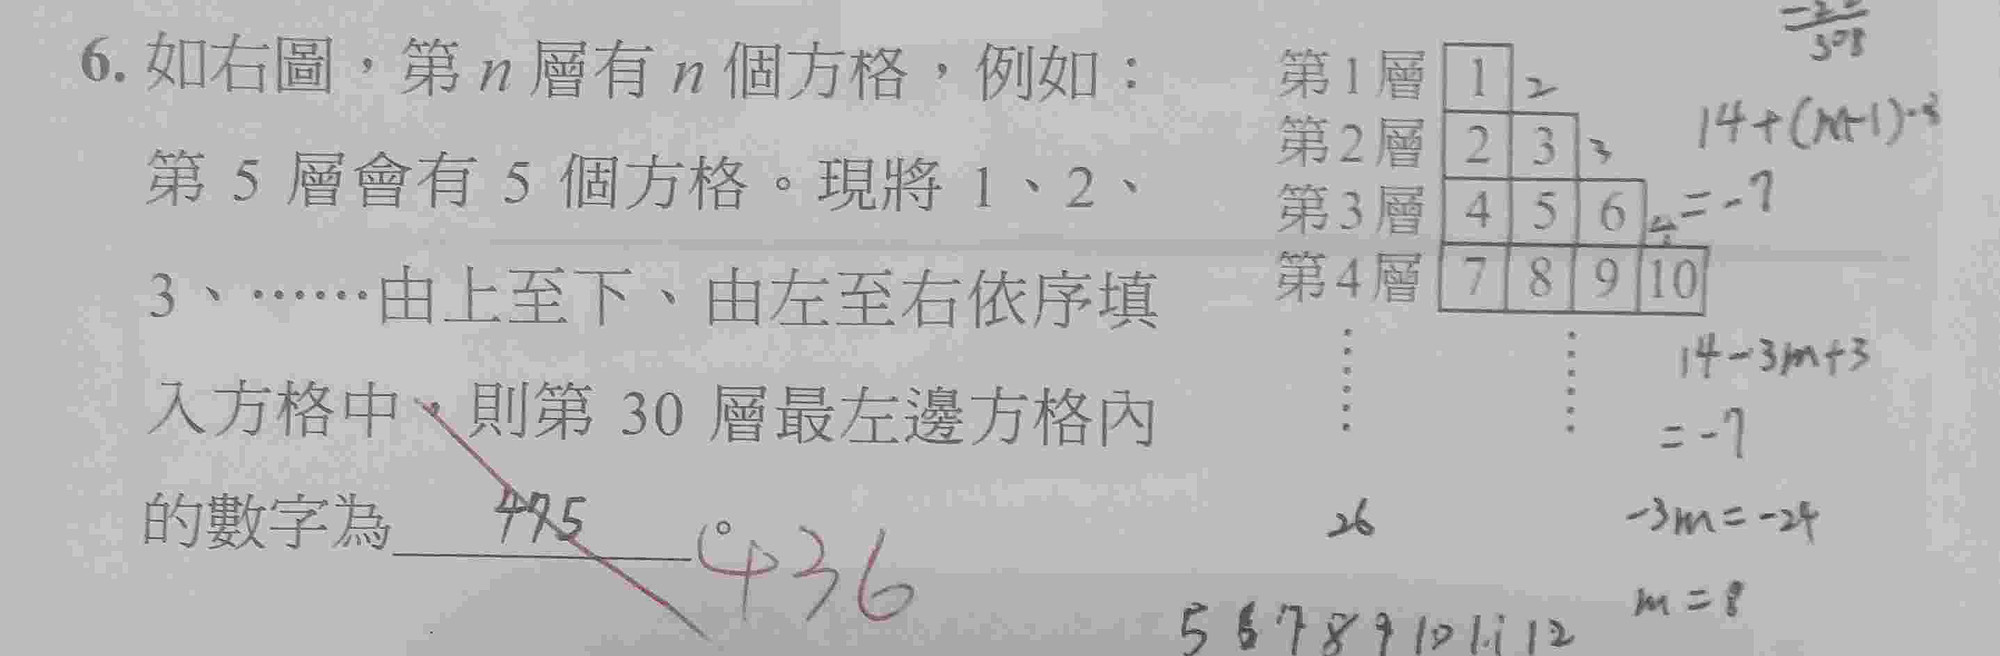 6. 如右圖，第 n 層有 n 個方格，例如：
第 5 層會有 5 個方格。現將 1、2、
3、……由上至下、由左至右依序填
入方格中，則第 30 層最左邊方格內
的數字為 475 。
436
第1層 1 2
第2層 2 3 3
第3層 4 5 6 4
第4層 7 8 9 10
308
14+(m-1)·-3
=-7
14-3m+3
=-7
-3m=-24
m=8
26
5 6 7 8 9 10 11 12